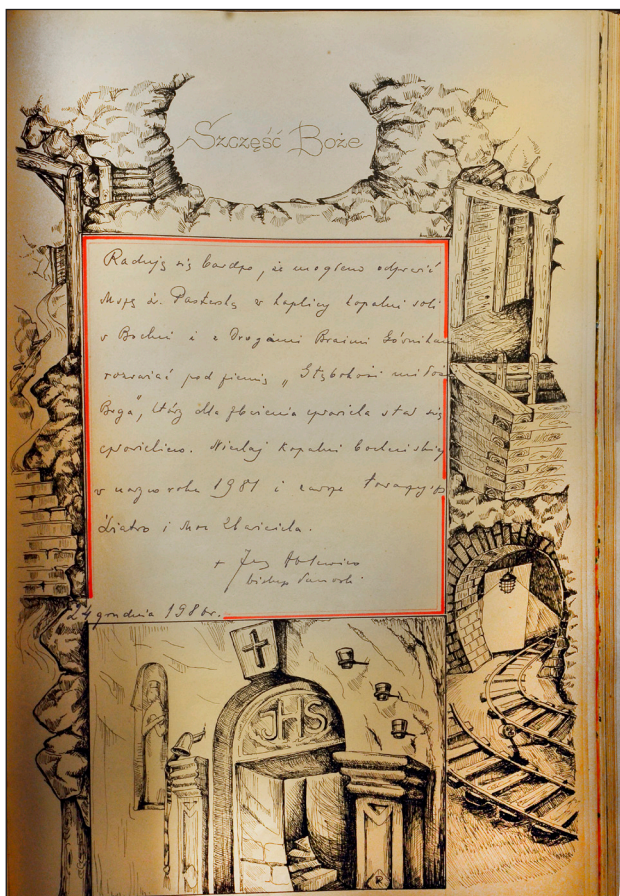 Szczęść Boże
Raduję się bardzo, że mogłem odprawić
Mszę św. Pasterską w kaplicy kopalni soli
w Bochni i z Drogimi Braćmi Górnikami
rozważać pod ziemią „Głębokość
Boga”, który dla zbawienia człowieka stał się
człowiekiem. Niechaj kopalni bocheńskiej
w nowym roku 1981 i zawsze towarzyszy
Światło i Moc Zbawiciela.
+ Jerzy Ablewicz
biskup Tarnowski
24 grudnia 198 r.
JHS